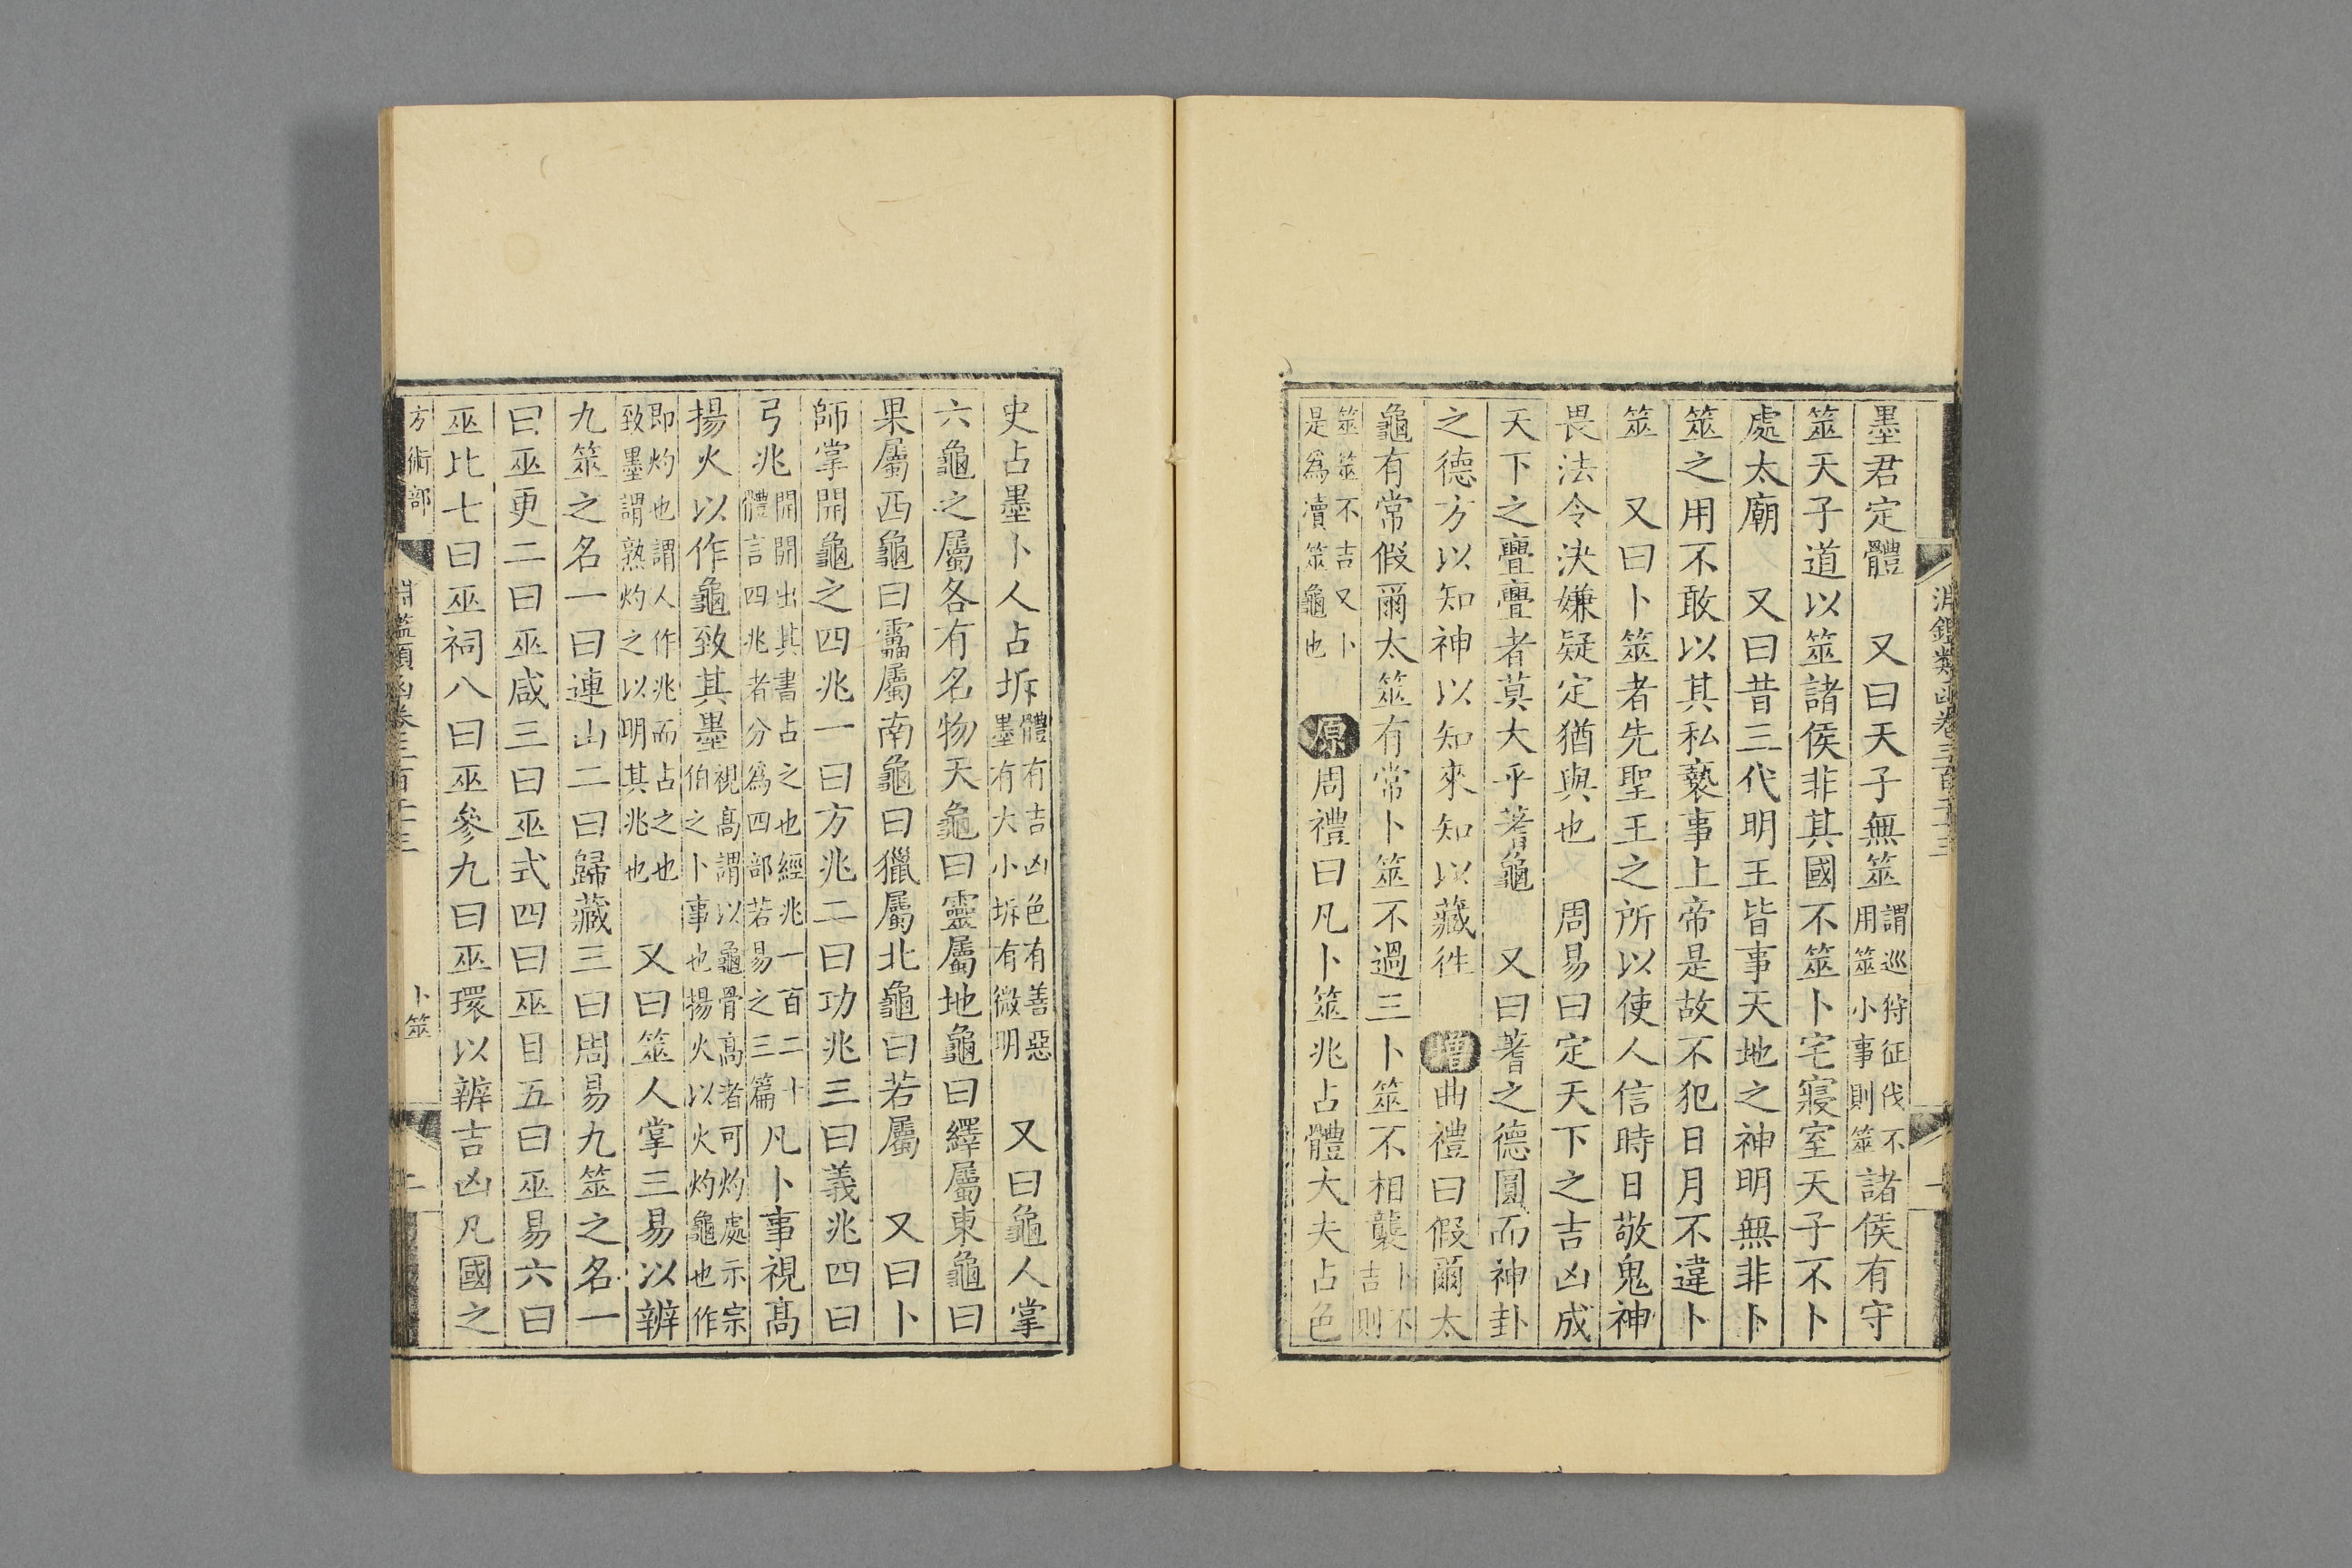 淵鑑類函卷三百二十三
墨君定體　又曰天子無筮謂巡狩征伐不用筮小事則筮諸侯有守
筮天子道以筮諸侯非其國不筮卜宅寢室天子不卜
處太廟　又曰昔三代明王皆事天地之神明無非卜
筮之用不敢以其私褻事上帝是故不犯日月不違卜
筮　又曰卜筮者先聖王之所以使人信時日敬鬼神
畏法令決嫌疑定猶與也　周易曰定天下之吉凶成
天下之亹亹者莫大乎蓍龜　又曰蓍之德圓而神卦
之德方以知神以知來知以藏徃　增曲禮曰假爾太
龜有常假爾太筮有常卜筮不過三卜筮不相襲卜不吉則
筮筮不吉又卜是爲瀆筮龜也　原周禮曰凡卜筮兆占體大夫占色
史占墨卜人占坼體有吉凶色有善惡墨有大小坼有微明　又曰龜人掌
六龜之屬各有名物天龜曰靈屬地龜曰繹屬東龜曰
果屬西龜曰靁屬南龜曰獵屬北龜曰若屬　又曰卜
師掌開龜之四兆一曰方兆二曰功兆三曰義兆四曰
弓兆開開出其書占之也經兆一百二十體言四兆者分爲四部若易之三篇凡卜事視高
揚火以作龜致其墨視高謂以龜骨高者可灼處示宗伯之卜事也揚火以火灼龜也作
即灼也謂人作兆而占之也致墨謂熟灼之以明其兆也　又曰筮人掌三易以辨
九筮之名一曰連山二曰歸藏三曰周易九筮之名一
曰巫更二曰巫咸三曰巫式四曰巫目五曰巫易六曰
巫比七曰巫祠八曰巫參九曰巫環以辨吉凶凡國之
方術部　淵鑑類函卷三百二十三　卜筮　二